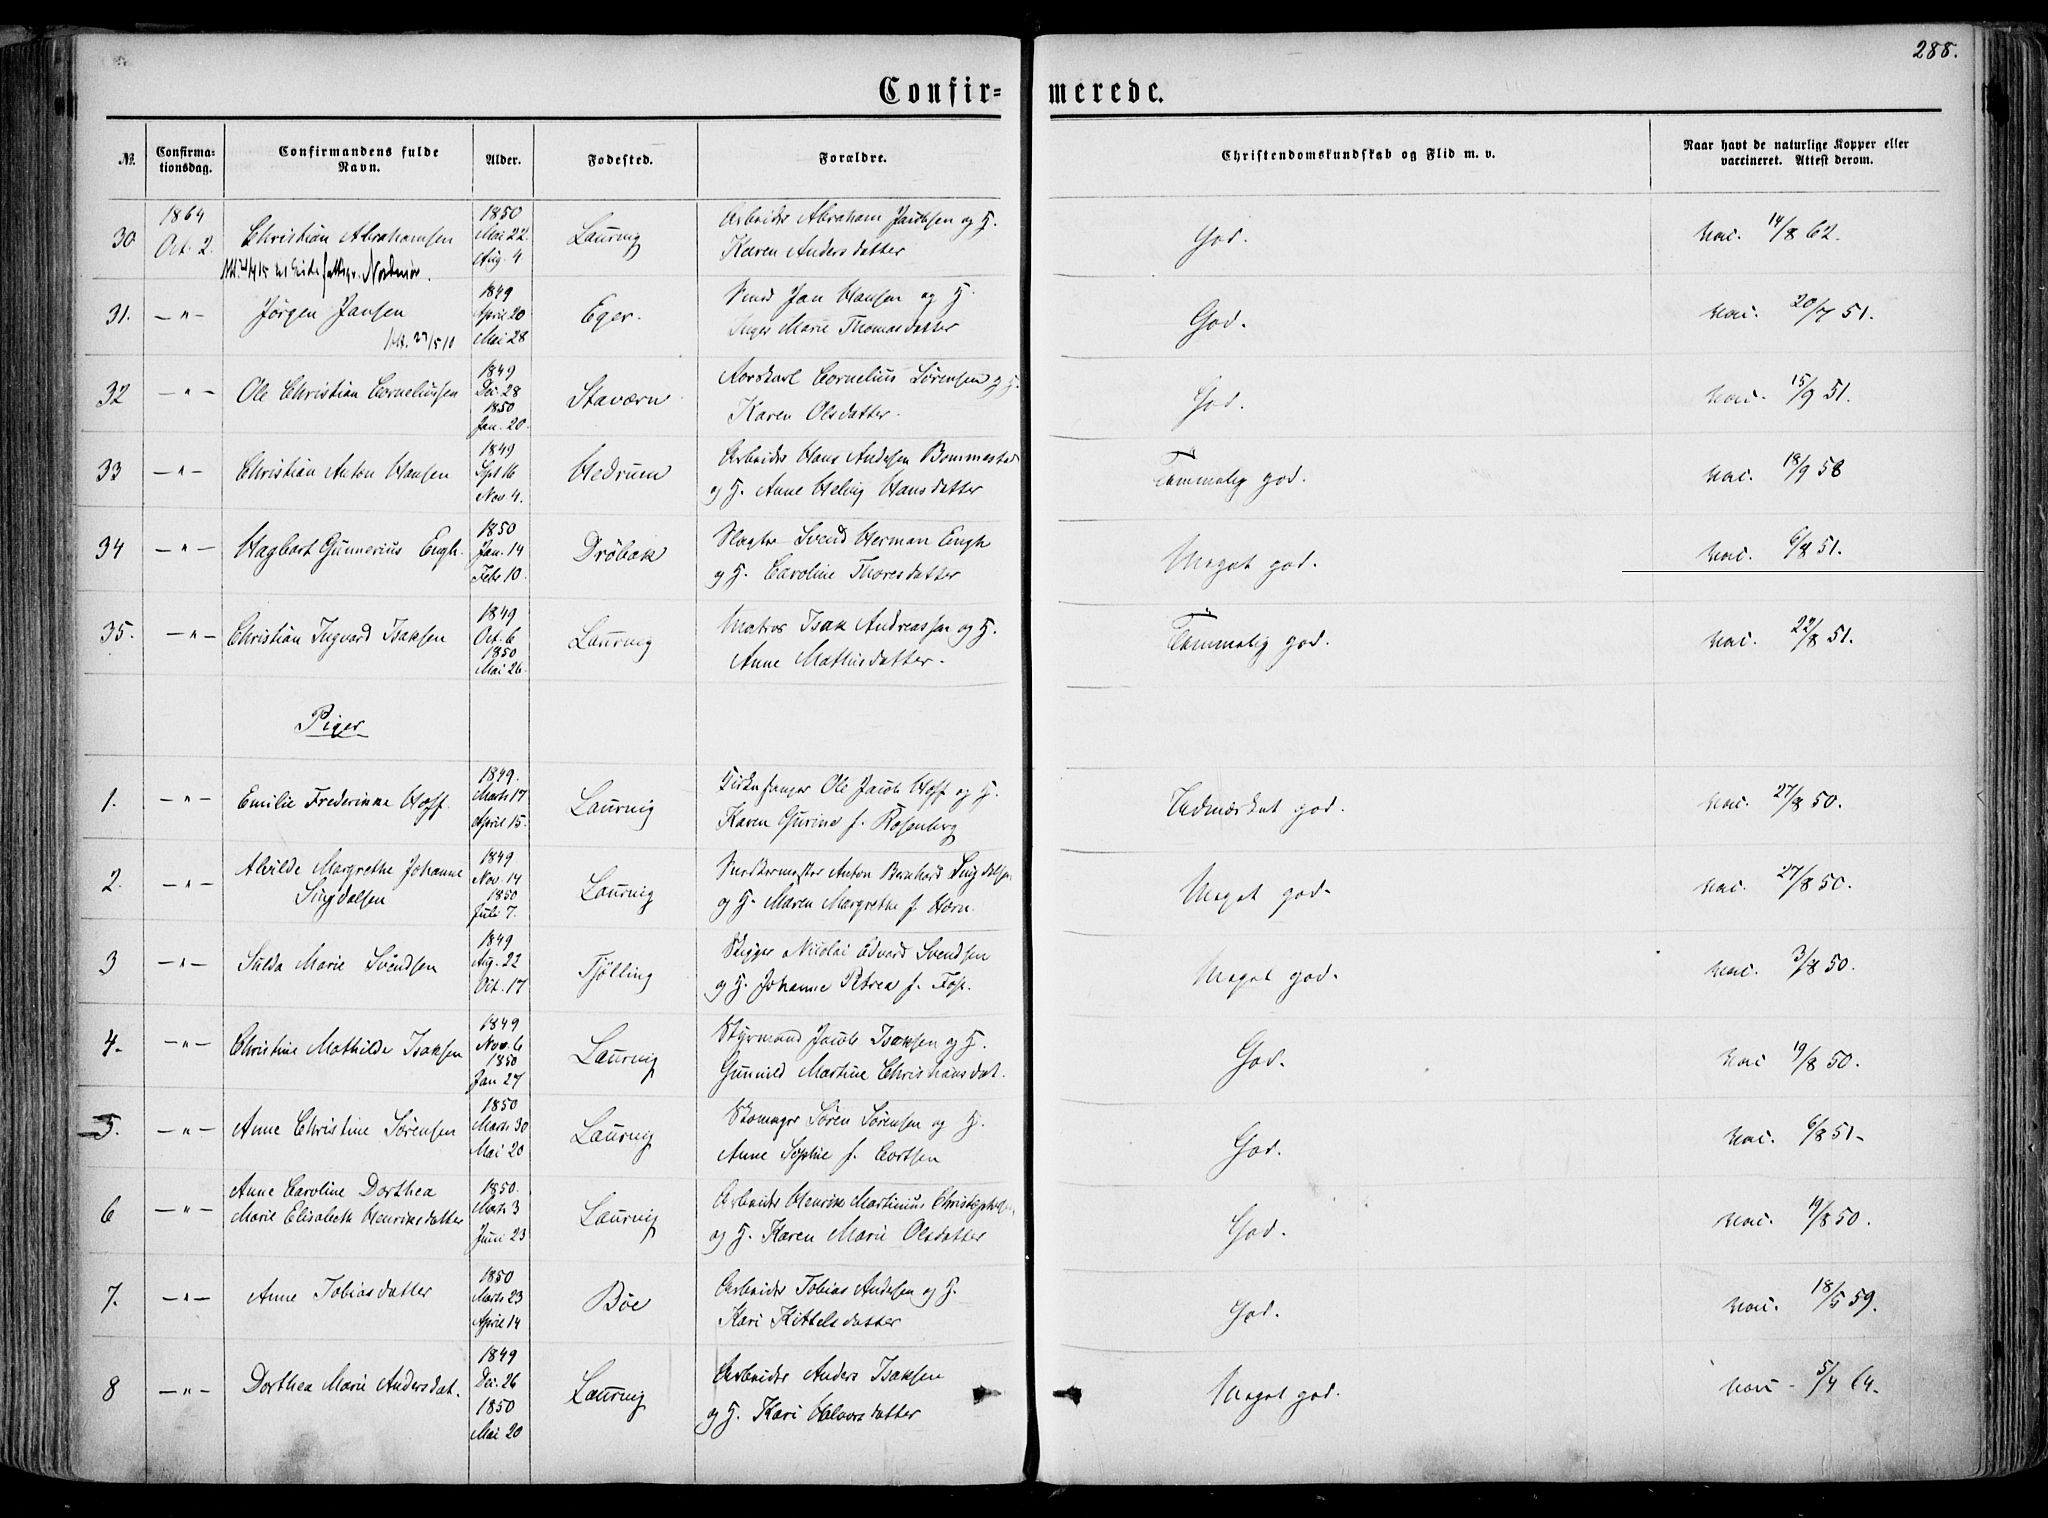 288.
Confir= merede.
№. Confirma-tionsdag. Confirmandens fulde Navn. Alder. Fødested. Forældre. Christendomskundskab og Flid m. v. Naar havt de naturlige Kopper eller vaccineret. Attest derom.
1864 1850 Arbeider Abraham Jacobsen og H.
30 Oct. 2. Christian Abrahamsen Mai 22. Laurvig God. vac. 14/8 62.
Aug. 4 Karen Andersdatter
Nordmør.
1849 Smed Jan Hansen og H.
31. —"— Jørgen Jansen April 20 Eger. God. vac. 20/7 51.
Att. 27/5 10 Mai 28 Inger Marie Thomasdatter
1849 Cornelius Sørensen og H.
32 —"— Ole Christian Corneliussen Dec. 28 Staværn God. vac. 15/9 51.
1850
Jan. 20. Karen Olsdatter.
1849 Arbeider Hans Andersen Bommestad
33 —"— Christian Anton Hansen Spt 16 Hedrum Temmelig god. vac. 18/9 58
Nov 4. og H. Anne Helvig Hansdatter
1850 Slagter Svend Herman Engh
34 —"— Hagbart Gunnerius Engh. Jan. 14 Drøbak Meget god. vac. 6/8 51.
Febr 10. og H. Caroline Thoresdatter
1849 Matros Isak Andreassen og H.
35. —"— Christian Ingvard Isaksen Oct. 6 Laurvig Temmelig god. vac. 22/8 51.
1850
Mai 26 Anne Mathisdatter.
Piger
1849. Ole Jacob Hoff og H.
1. —"— Emilie Frederikke Hoff. Marts 17 Laurvig Udmærket god. vac. 27/8 50.
April 15. Karen Gurine f. Rosenberg
Alvilde Margrethe Johanne 1849 Anton Bernhard Singdalsen
2. —"— Singdalsen Nov 14 Laurvig Meget god. vac. 27/8 50.
1850
Juli 7. og H. Maren Margrethe f. Horn.
1849 Skipper Nicolai Edvard Svendsen
3 —"— Hulda Marie Svendsen Aug. 22 Tjølling Meget god. vac. 3/8 50.
Oct. 17 og H. Johanne Petrea f. Foss.
1849 Styrmand Jacob Isaksen og H.
4. —"— Christine Mathilde Isaksen Nov. 6 Laurvig God. vac 19/8 50.
1850
Jan 27 Gunnild Martine Christiansdat.
1850 Skomager Søren Sørensen og H.
5. —"— Anne Christine Sørensen Marts 30 Laurvig God. vac. 6/8 51-
Mai 20 Anne Sophie f. Cortsen
Anne Caroline Dorthea 1850. Arbeider Henrik Martinius Christophersen
6 —"— Marie Elisabeth Henriksdatter Mars 3 Laurvig God. vac. 19/8 50.
Juni 23 og H. Karen Marie Olsdatter
1850 Arbeider Tobias Andersen og H.
7. —"— Anne Tobiasdatter Marts 23 Bøe God. vac. 18/5 59.
April 14 Kari Kittelsdatter
1849 Arbeider Anders Isaksen
8 —"— Dorthea Marie Andersdat. Dec. 26 Laurvig Meget god. vac - 5/4 64.
1850 og H. Kari Halvorsdatter
Mai 20